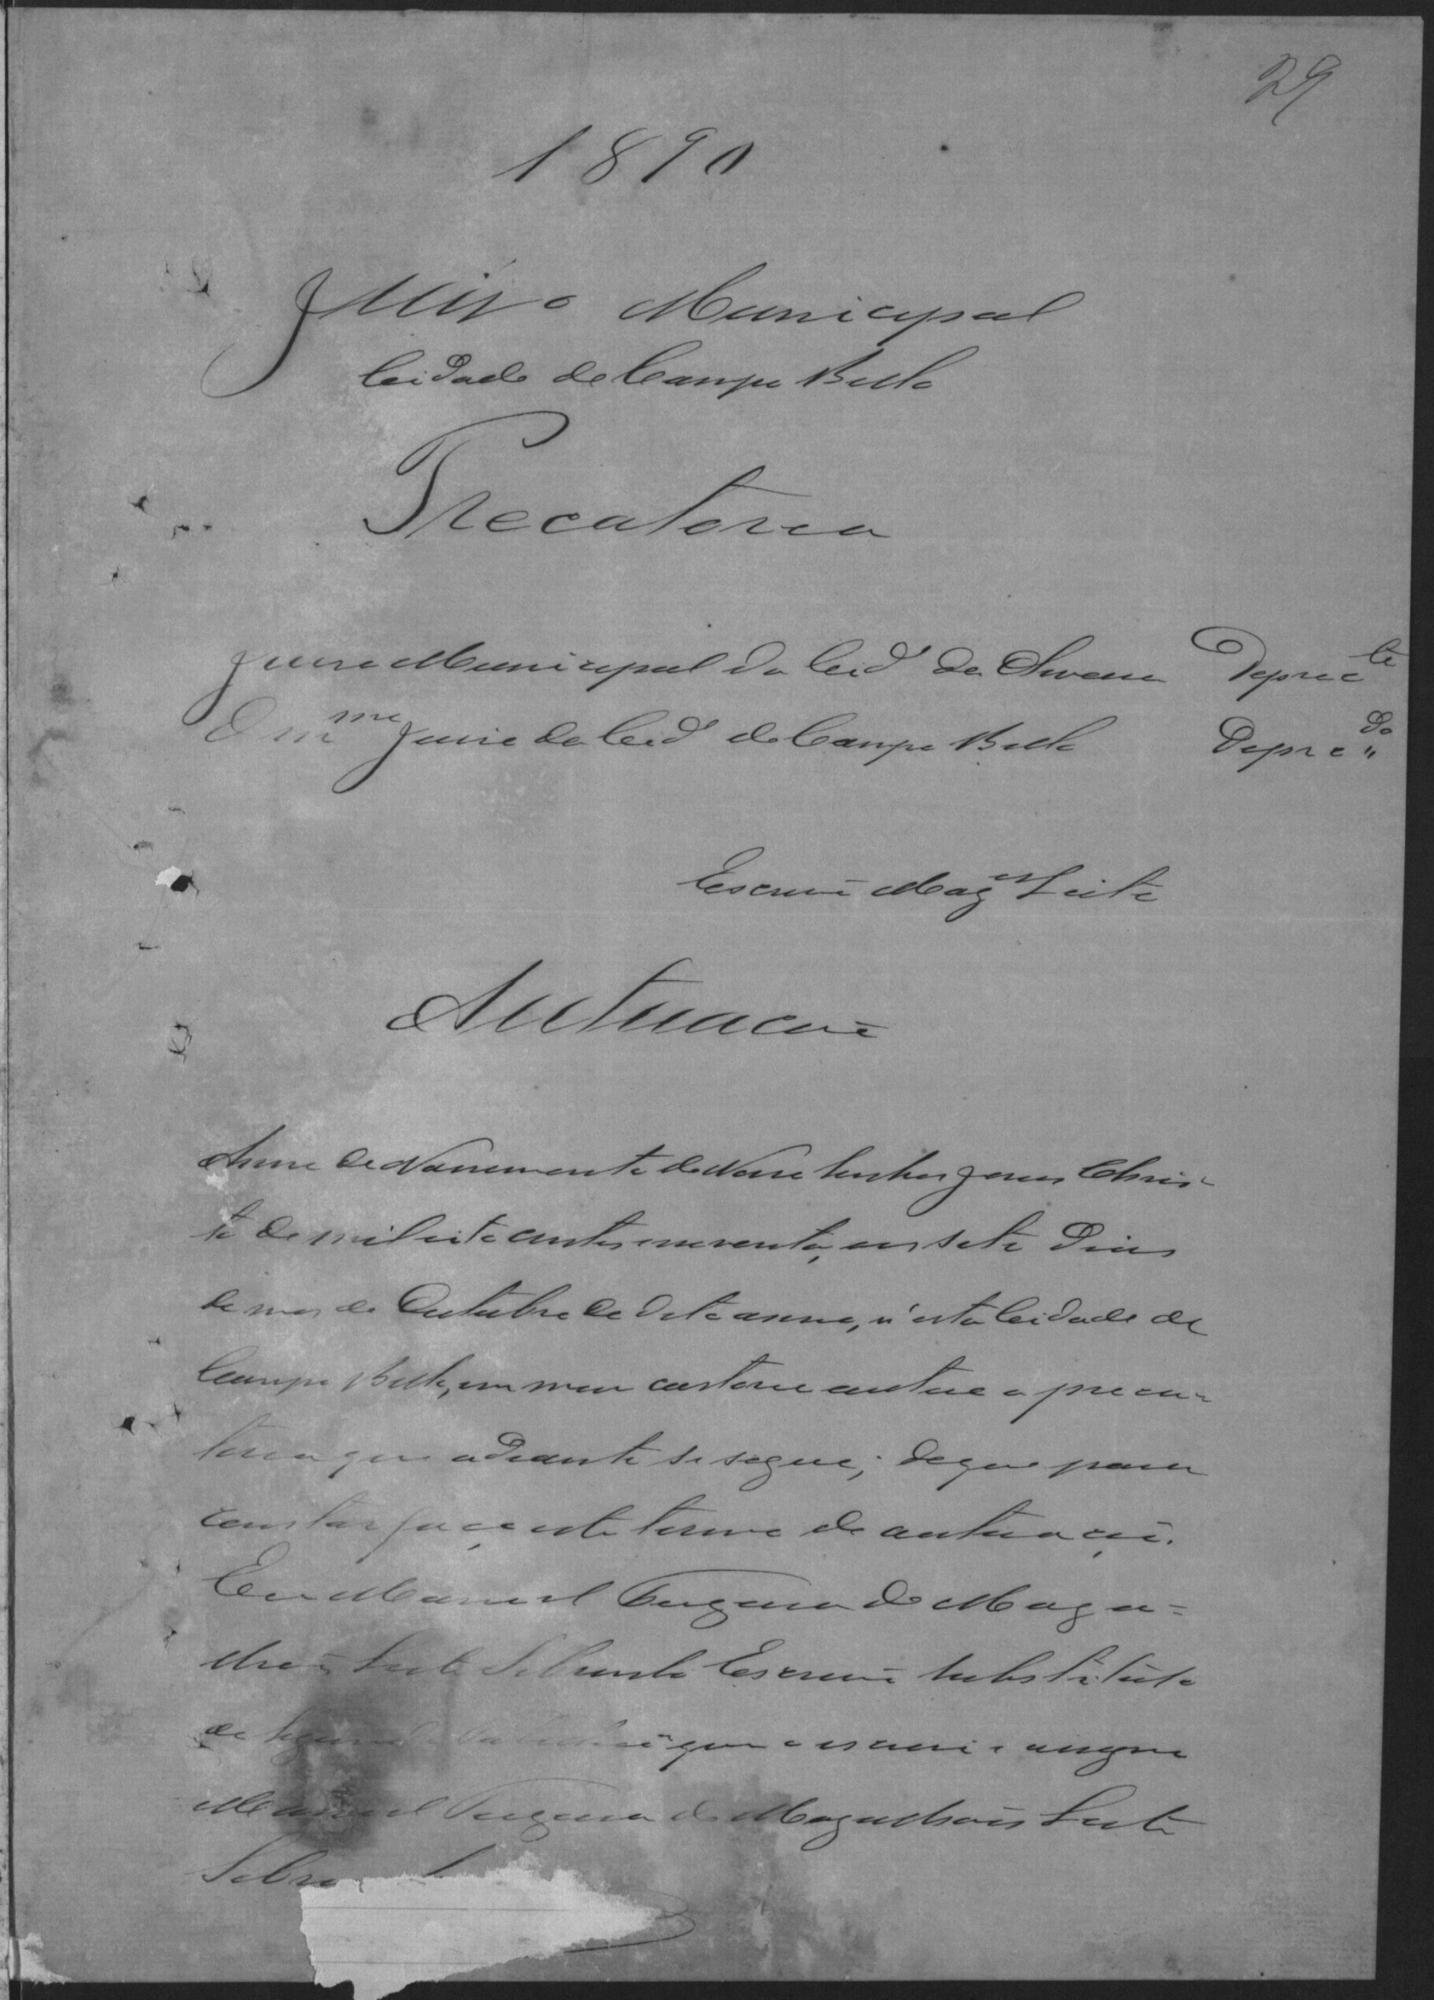 29
1890
Juizo Municipal
Cidade de Campo Bello
Precatoria
Juizo Municipal da Cid.e de Deprec.te
O m.mo Juizo da Cid.e de Campo Bello Deprec.do
Escrivão Mag.es Leite
Autuação
Anno do Nascimento de Nosso Senhor Jesus Chris-
to de mil oito centos e noventa, aos sete dias
do mes de Outubro do dito anno, n'esta Cidade de
Campo Bello, em meu cartorio autuo a preca-
toria que adiante se segue; do que para
constar faço este termo de autuação.
Eu Manoel de Maga=
lhães Leite Sobrinho Escrivão substituto
do que o escrevi e assigno
Manoel de Magalhães Leite